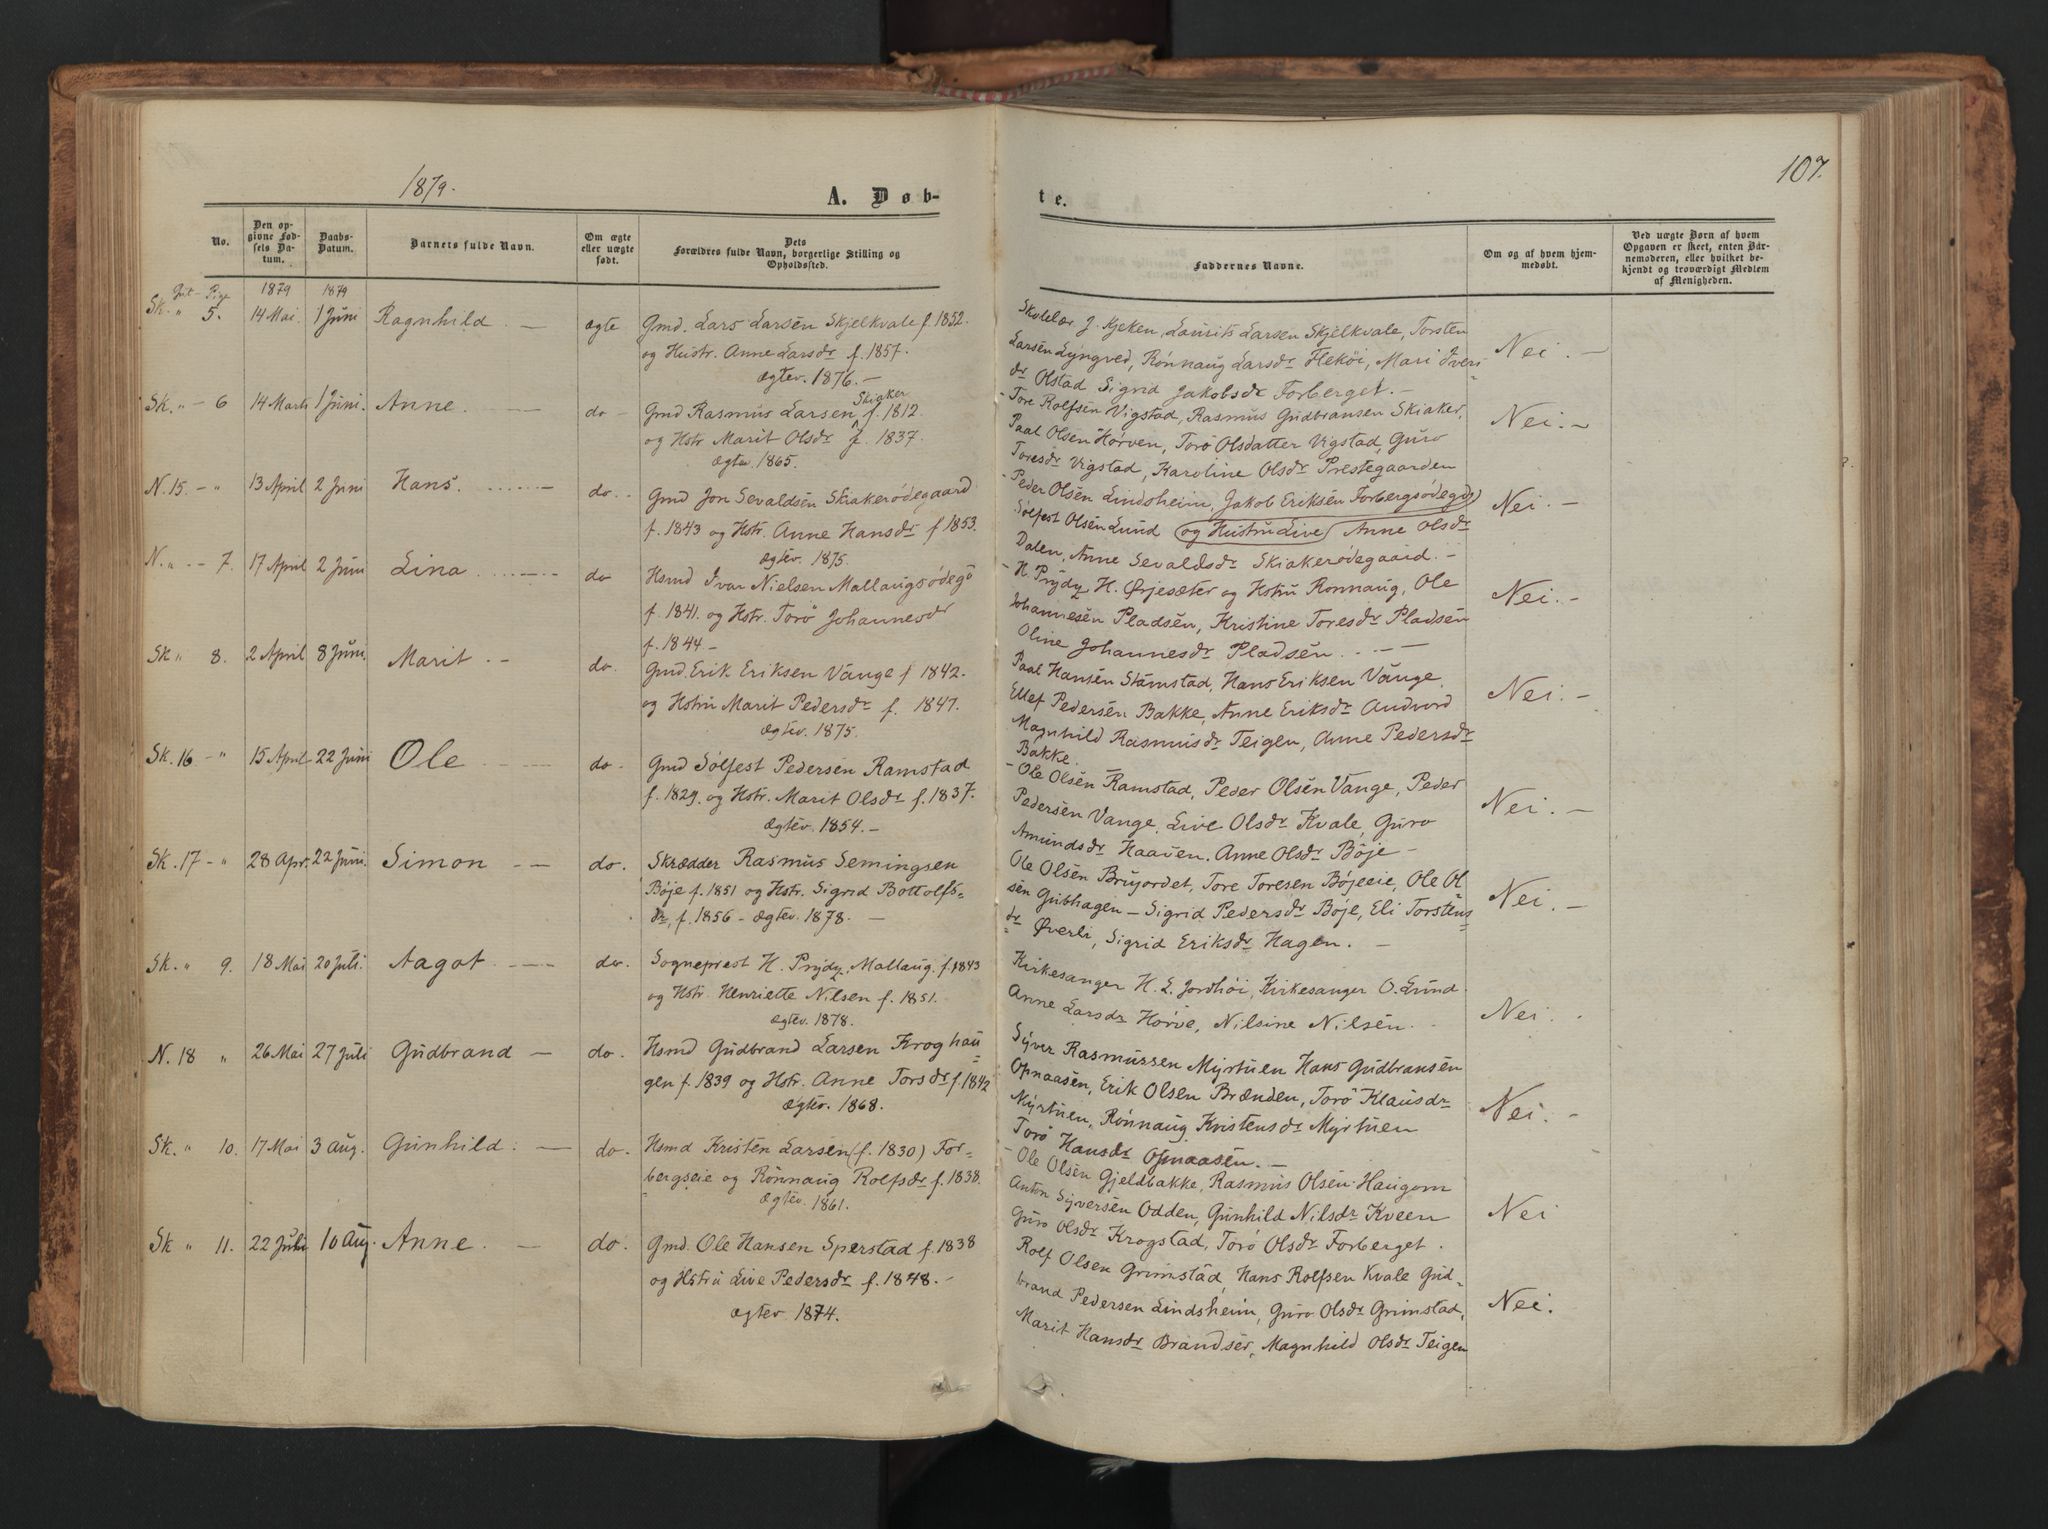 1879.
A. Døb-
No.
Den op-
givne Fød-
sels Da-
tum.
Daabs-
Datum.
Barnets fulde Navn.
Om ægte
eller uægte
født.
Dets
Forældres fulde Navn, borgerlige Stilling og
Opholdssted.
Gut - Pige
1879
1879
Sk. " 5. 14 Mai. 1 Juni Ragnhild. — ægte Gmd. Lars Larsen Skjelkvale f. 1852.
og Hustr. Anne Larsdr f. 1857.
ægtev. 1876. —
Sk. " - 6 14 Marts 1 Juni. Anne. — do — Gmd Rasmus Larsen Skiaker f. 1812.
og Hstr Marit Olsdr f. 1837.
ægtev. 1865.
N. 15. - " 13 April 2 Juni Hans. — do. Gmd Jon Sevaldsen Skiakerødegaard
f. 1843 og Hstr. Anne Hansdr f 1853.
ægtev. 1875.
N. " - 7. 17 April 2 Juni Lina — do Hsmd Ivar Nielsen Mallaugsødegd
f. 1841. og Hstr. Torø Johannesdr
f. 1844 —
Sk " 8. 2 April 8 Juni. Marit. — do. Gmd. Erik Eriksen Vange f 1842.
og Hstru Marit Pedersdr f. 1847.
ægtev. 1875.
Sk. 16 - " 15 April 22 Juni Ole — do. Gmd Sølfest Pedersen Ramstad
f. 1829. og Hstr. Marit Olsdr f. 1837.
ægtev. 1854. —
Sk. 17 - " 28 Apr. 22 Juni. Simon — do. Skrædder Rasmus Semingsen
Bøje f. 1851 og Hstr. Sigrid Bottolfs-
dr, f. 1856 - ægtev. 1878. —
Sk. " 9. 18 Mai 20 Juli. Aagot — do. Sogneprest H. Prydz, Mallaug. f. 1843
og Hstr. Henriette Nilsen f. 1851.
ægtev. 1878.
N. 18 " 26 Mai 27 Juli Gudbrand — do. Hsmd Gudbrand Larsen Kroghau-
gen f. 1839 og Hstr. Anne Torsdr f. 1842
ægtev. 1868.
Sk. " 10. 17 Mai 3 Aug. Gunhild. — do. Hsmd Kristen Larsen (f. 1830) For-
bergseie og Rønnaug Rolfsdr f. 1838.
ægtev. 1861.
Sk " 11. 22 Juli 10 Aug. Anne. — do. Gmd. Ole Hansen Sperstad f. 1838
og Hstru Live Pedersdr f. 1848. —
ægtev 1874.
107.
te.
Faddernes Navne.
Om og af hvem hjem-
medøbt.
Ved uægte Børn af hvem
Opgaven er skeet, enten Bar-
nemoderen, eller hvilket be-
kjendt og troværdigt Medlem
af Menigheden.
Skolelær. J. Kjeken, Laurits Larsen Skjelkvale, Torsten
Larsen Lyngved, Rønnaug Larsdr Flekøi, Mari Ivers-
dr Olstad Sigrid Jakobsdr Forberget. —
Nei. —
- Tore Rolfsen Vigstad, Rasmus Gudbransen Skiaker,
Paal Olsen Hørven, Torø Olsdatter Vigstad, Guro
Toresdr Vigstad, Karoline Olsdr Prestegaarden
Nei. —
- Peder Olsen Lindsheim, Jakob Eriksen Forbergsødegd,
Sølfest Olsen Lund og Hustru Live, Anne Olsdr
Dalen, Anne Sevaldsdr Skiakerødegaard. —
Nei. —
- H Prydz, H. Ørjesæter og Hstru Ronnaug, Ole
Johannesen Pladsen, Kristine Toresdr Pladsen
Oline Johannesdr Pladsen. —
Nei. —
Paal Hansen Stamstad, Hans Eriksen Vange,
Ellef Pedersen Bakke, Anne Eriksdr Andvord
Magnhild Rasmusdr Teigen, Anne Pedersdr
Bakke.
Nei. —
- Ole Olsen Ramstad, Peder Olsen Vange, Peder
Pedersen Vange, Live Olsdr Kvale, Guro
Amundsdr Haaven. Anne Olsdr Bøje —
Nei. —
Ole Olsen Brujordet, Tore Toresen Bøjeeie, Ole Ol-
sen Gubhagen — Sigrid Pedersdr Bøje, Eli Torstens-
dr Øverli, Sigrid Eriksdr Hagen. —
Nei. —
Kirkesanger H. L. Jordhøi, Kirkesanger O. Lund.
Anne Larsdr Hørve, Nilsine Nilsen.
Nei.
Syver Rasmussen Myrtuen Hans Gudbransen
Opnaasen, Erik Olsen Brænden, Torø Klausdr
Myrtuen, Rønnaug Kristensdr Myrtuen
Torø Hansdr Opnaasen. —
Nei. —
- Ole Olsen Gjeldbakke, Rasmus Olsen Haugom
Anton Syversen Odden, Gunhild Nilsdr Kveen
Guro Olsdr Krogstad, Torø Olsdr Forberget.
Nei
Rolf Olsen Grimstad, Hans Rolfsen Kvale Gud-
brand Pedersen Lindsheim, Guro Olsdr Grimstad,
Marit Hansdr Brandser, Magnhild Olsdr Teigen
Nei.